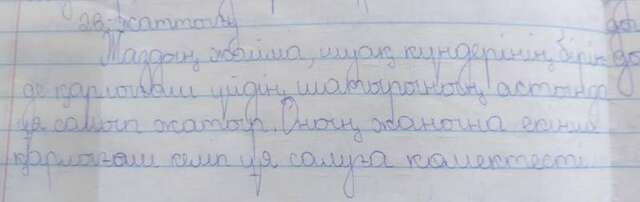 28-жаттығу
Маздың жайма, шуақ күндерінің бірін
де қарлығаш үйдің шатырының астына
ұя салып жатыр. Оның жанына екінші
қарлығаш келіп ұя салуға көмектесті